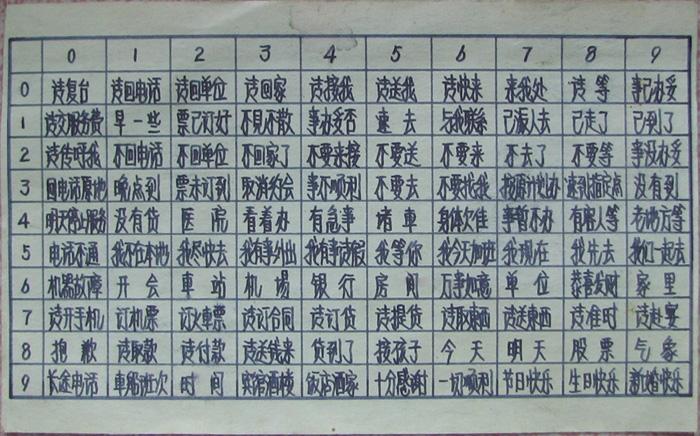 0 1 2 3 4 5 6 7 8 9
0 请复台 请回电话 请回单位 请回家 请接我 请送我 请快来 来我处 请等 事已办妥
1 请交服务费 早一些 票已订好 不见不散 事办妥否 速去 与我联系 已派人去 已走了 已到了
2 请传呼我 不回电话 不回单位 不回家了 不要来接 不要送 不要来 不去了 不要等 事没办妥
3 回电话原地 晚点到 票未订到 取消约会 事不顺利 不要去 不要找我 按原计划办 速到指定点 没有到
4 明天停止服务 没有货 医院 看着办 有急事 堵車 身体欠佳 事暂不办 有贼人等 老地方等
5 电话不通 我不在本地 我尽快去 我有事外出 我有事请假 我等你 我今天加班 我现在 我先去 我们一起去
6 机器故障 开会 車站 机場 银行 房间 万事如意 单位 恭喜发财 家里
7 请开手机 订机票 订火車票 请订合同 请订货 请提货 请取東西 请送東西 请准时 请赴宴
8 抱歉 请取款 请付款 请送钱来 货到了 接孩子 今天 明天 股票 气象
9 长途电话 車船班次 时间 宾馆酒楼 饭店酒家 十分感谢 一切顺利 节日快乐 生日快乐 新婚快乐